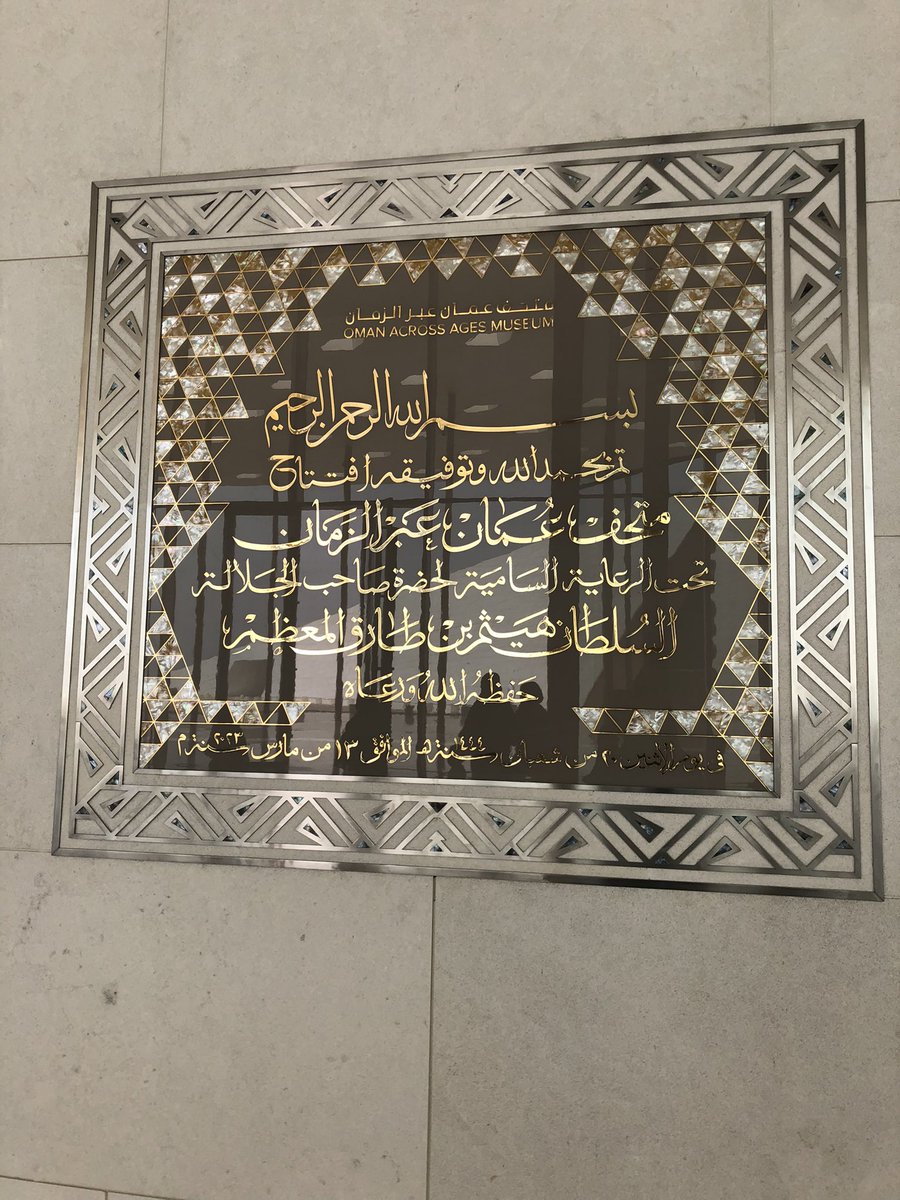 متحف عمان عبر الزمان
OMAN ACROSS AGES MUSEUM
بسم الله الرحمن الرحيم
تم بحمد الله وتوفيقه افتتاح
متحف عُمَان عَبْر الزَمان
تحت الرعاية السامية لحضرة صاحب الجلالة
السُلطان هيثم بن طارق المعظم
حفظهُ اللهُ ورعاه
في يوم الإثنين ٢٠ من شعبان سنة ١٤٤٤ هـ الموافق ١٣ من مارس سنة ٢٠٢٣ م